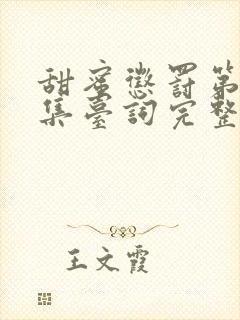 甜蜜懲罰第
集臺詞完整
王文霞